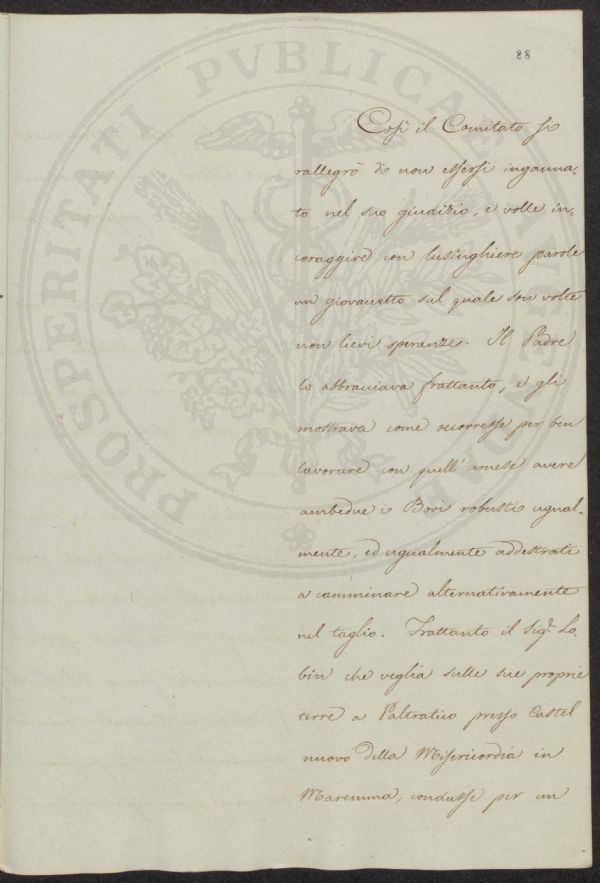 88
Così il Comitato si
rallegrò di non essersi inganna-
to nel suo giudizio, e volle in-
coraggire con lusinghiere parole
un giovanetto sul quale son volte
non lievi speranze. Il Padre
lo abbracciava frattanto, e gli
mostrava come occorresse per ben
lavorare con quell'arnese avere
ambedue i Bovi robusti egual-
mente, ed ugualmente addestrati
a camminare alternativamente
nel taglio. Frattanto il Sig. Lo-
bin che veglia sulle sue proprie
terre a Paltratico presso Castel
nuovo della Misericordia in
Maremma, condusse per un
PROSPERITATI PVBLICAE AVGENDAE